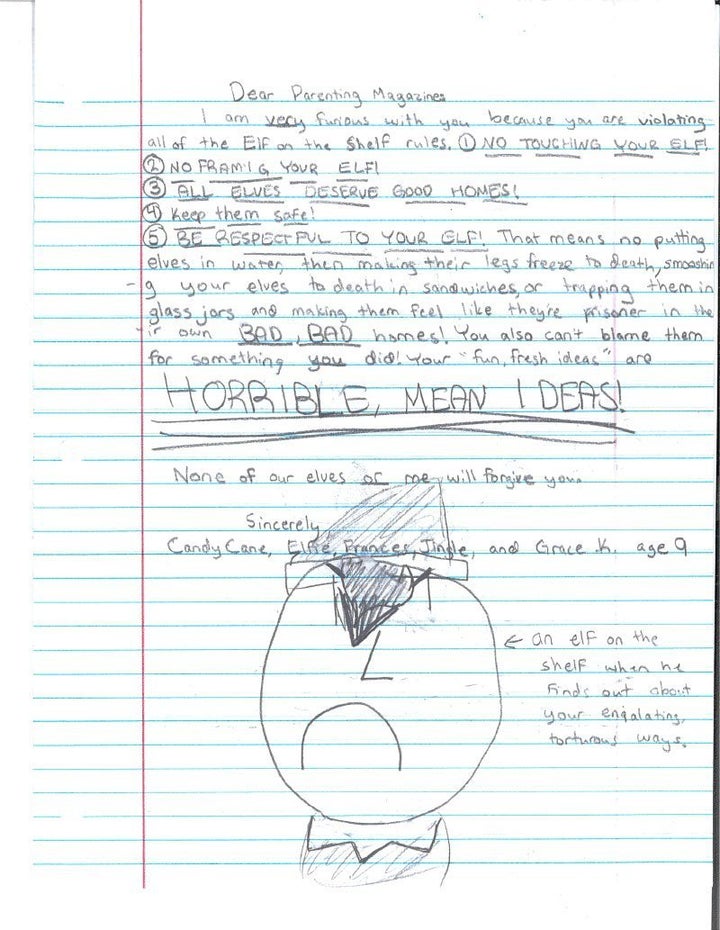 Dear Parenting Magazines
I am very furious with you because you are violating
all of the Elf on the Shelf rules. ① NO TOUCHING YOUR ELF!
② NO FRAMIG YOUR ELF!
③ ALL ELVES DESERVE GOOD HOMES!
④ Keep them safe!
⑤ BE RESPECTFUL TO YOUR ELF! That means no putting
elves in water, then making their legs freeze to death, smooshin
-g your elves to death in sandwiches, or trapping them in
glass jars and making them feel like they're prisoner in the
-ir own BAD, BAD homes! You also can't blame them
for something you did! Your "fun, fresh ideas" are
HORRIBLE, MEAN IDEAS!
None of our elves or me will forgive you.
Sincerely
Candy Cane, Elfie, Frances, Jingle, and Grace K. age 9
← an elf on the
shelf when he
finds out about
your engalating,
torturous ways.